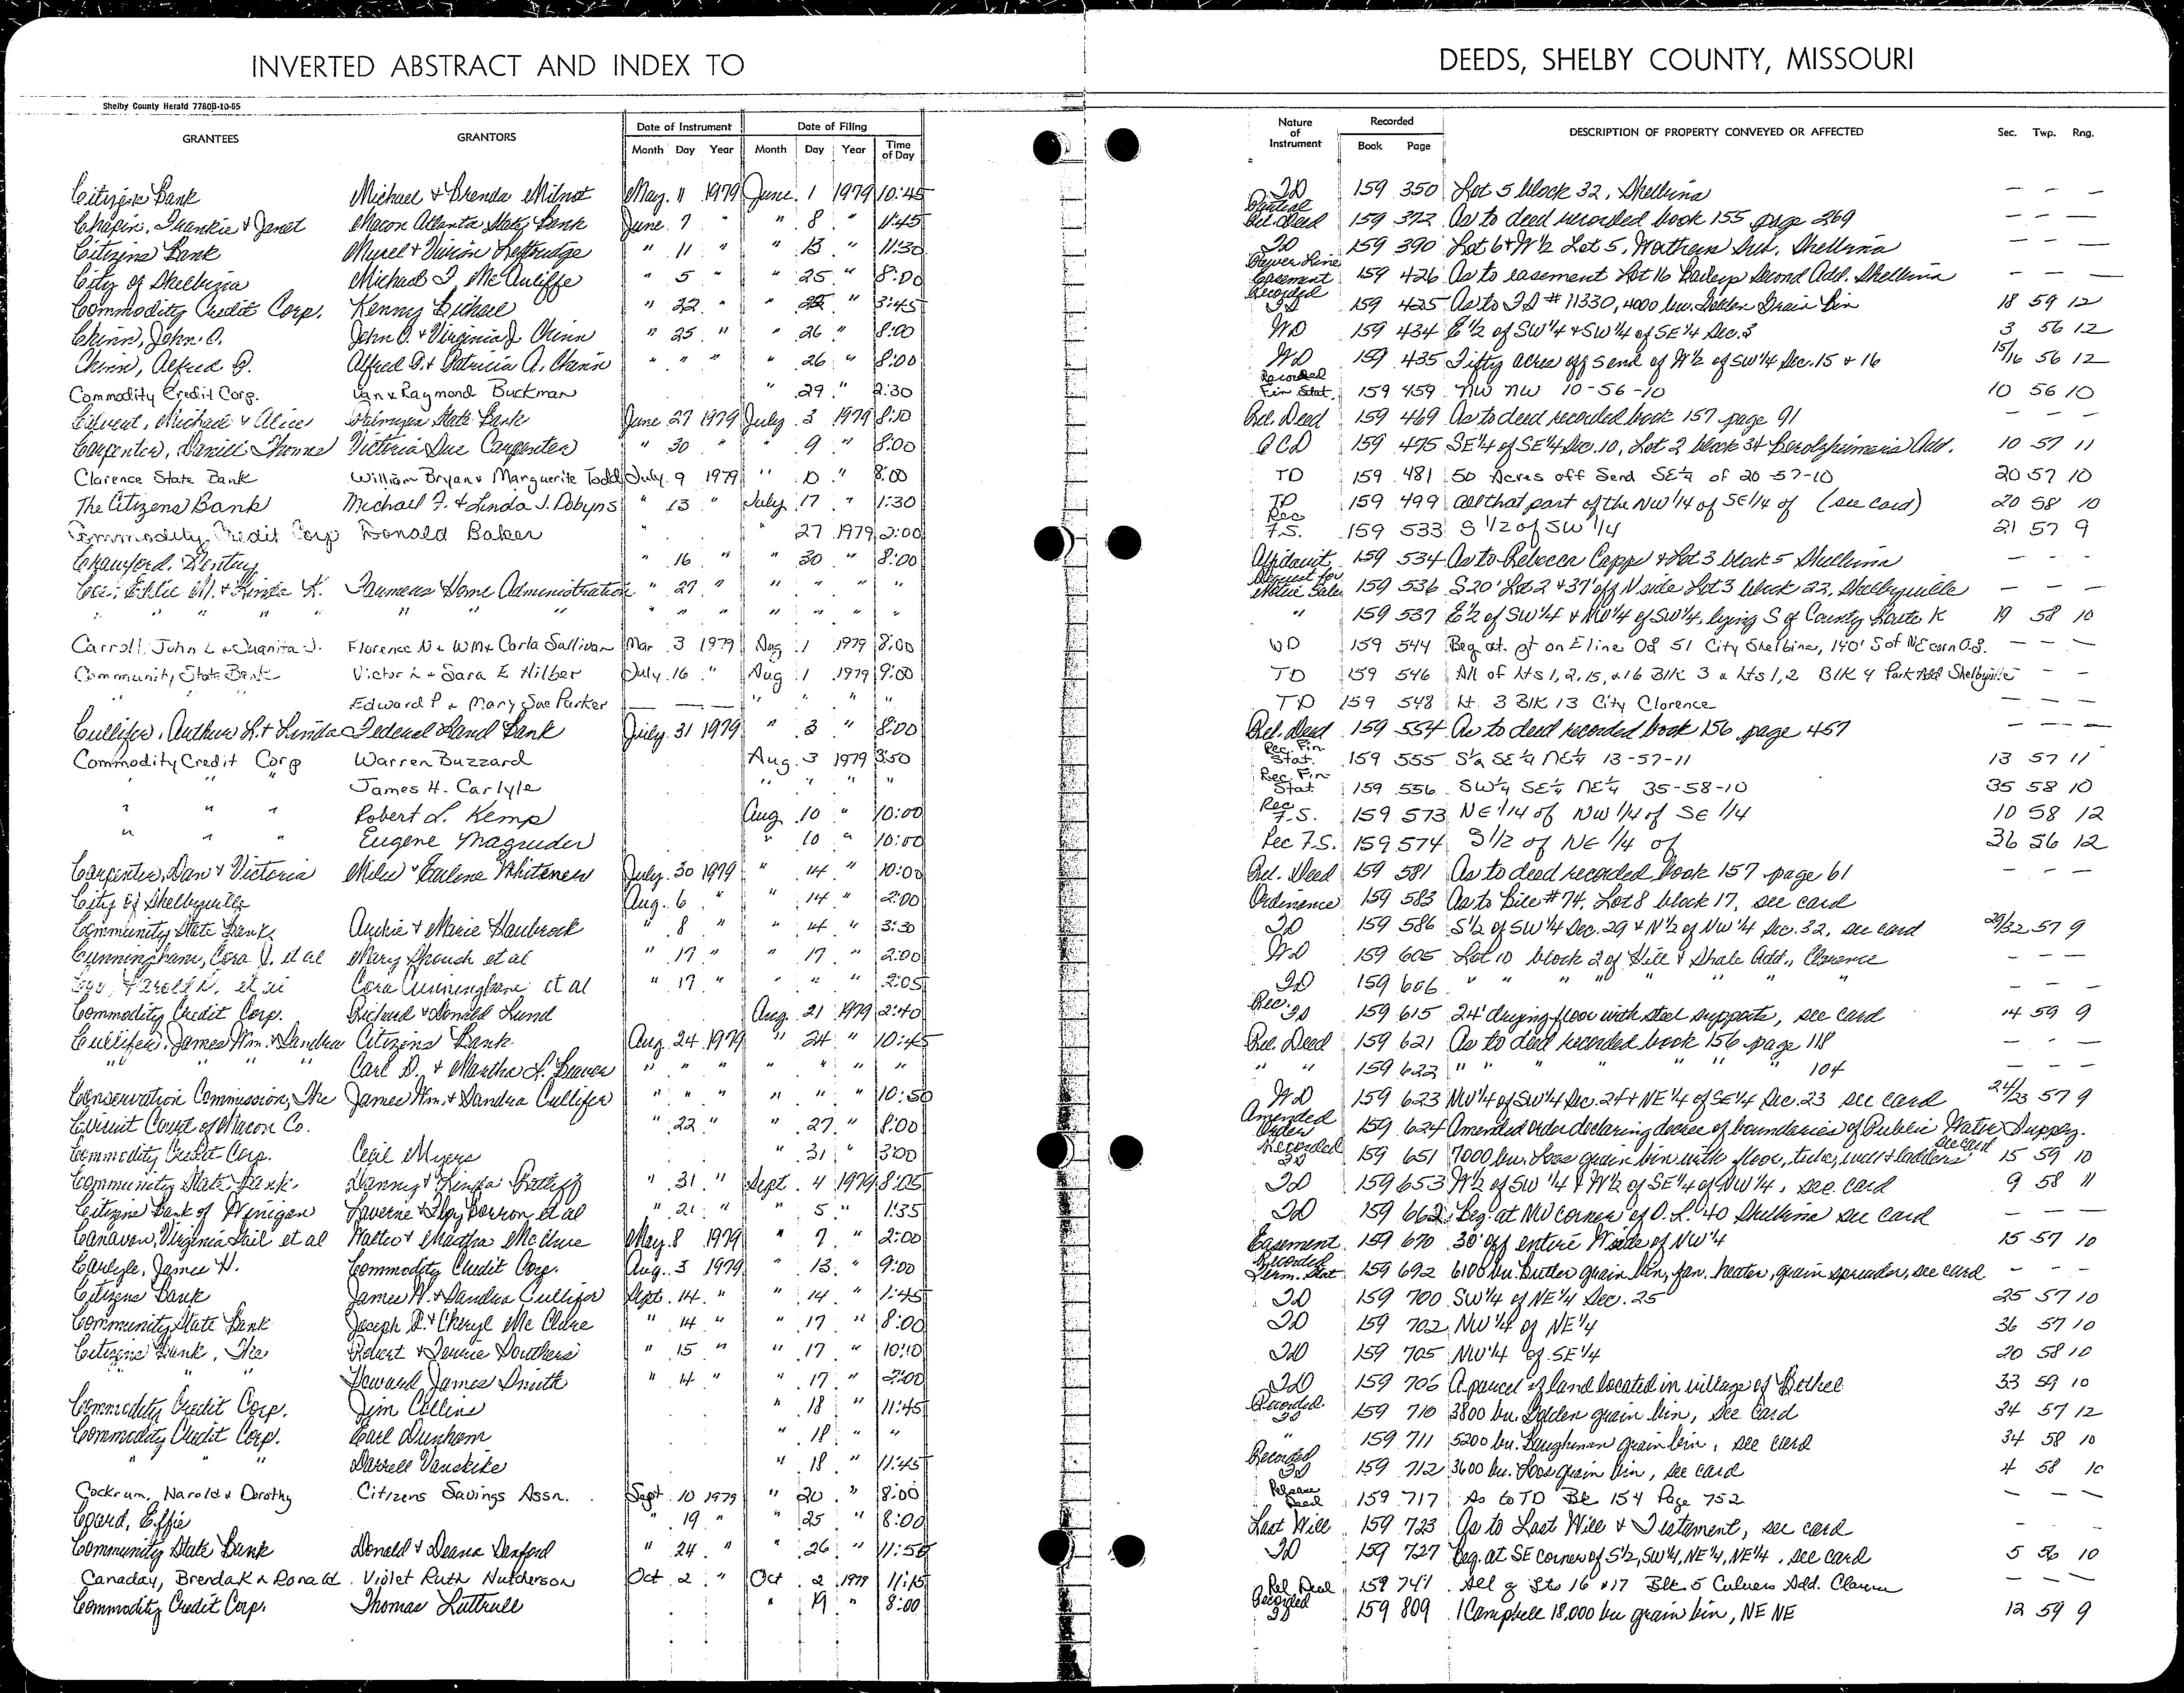 INVERTED ABSTRACT AND INDEX TO DEEDS, SHELBY COUNTY, MISSOURI
Shelby County Herald 7780B-10-65
GRANTEES GRANTORS Date of Instrument Date of Filing Nature of Instrument Recorded DESCRIPTION OF PROPERTY CONVEYED OR AFFECTED Sec. Twp. Rng.
Month Day Year Month Day Year Time of Day Book Page
Citizens Bank Michael & Brenda Milnot May 11 1979 June 1 1979 10:45 TD 159 350 Lot 5 block 32, Shelbina — — —
Chapin, Frankie & Janet Macon Atlanta State Bank June 7 " " 8 " 11:45 Partial Rel. Deed 159 372 As to deed recorded book 155 page 269 — — —
Citizens Bank Myrel & Vivian " 11 " " 13 " 11:30 TD 159 390 Lot 6 & W½ Lot 5, Shelbina — — —
City of Shelbina Michael J. McAuliffe " 5 " " 25 " 8:00 Easement 159 426 As to easement Lot 16 Second Add. Shelbina — — —
Commodity Credit Corp. Kenny " 22 " " 25 " 3:45 Recorded 159 425 As to # 11330, 4000 bu. Grain Bin 18 59 12
Chinn, John O. John O. & Virginia J. Chinn " 25 " " 26 " 8:00 WD 159 434 E½ of SW¼ & SW¼ of SE¼ Sec. 3 3 56 12
Chinn, Alfred D. Alfred D. & Patricia A. Chinn " " " " 26 " 8:00 WD 159 435 Fifty acres off S end of W½ of SW¼ Sec. 15 & 16 15/16 56 12
Commodity Credit Corp. Van & Raymond Buckman " 29 " 2:30 Recorded Fin Stat. 159 459 NW NW 10-56-10 10 56 10
Michael & Alice Palmyra State Bank June 27 1979 July 3 1979 8:10 Rel. Deed 159 469 As to deed recorded book 157 page 91 — — —
Carpenter, Daniel Thomas Victoria Sue Carpenter " 30 " " 9 " 8:00 QCD 159 475 SE¼ of SE¼ Sec. 10, Lot 2 block 34 Add. 10 57 11
Clarence State Bank William Bryan & Marguerite Todd July 9 1979 " 10 " 8:00 TD 159 481 50 Acres off Send SE¼ of 20-57-10 20 57 10
The Citizens Bank Michael F. & Linda J. Dobyns " 13 " July 17 " 1:30 TD 159 499 All that part of the NW 1/4 of SE 1/4 of (see card) 20 58 10
Commodity Credit Corp Donald Baker 27 1979 2:00 Rec F.S. 159 533 S 1/2 of SW 1/4 21 57 9
Crawford, Destiny " 16 " " 30 " 8:00 Affidavit 159 534 As to Rebecca Capp & Lot 3 block 5 Shelbina — — —
Cox, Eddie M. & Linda K. Farmers Home Administration " 27 " " " " " Request for Notice Sale 159 536 S20' Lot 2 & 37' off N side Lot 3 block 22, Shelbyville — — —
" " " " " " " " " " 159 537 E½ of SW¼ & NW¼ of SW¼, lying S of County Route K 19 58 10
Carroll, John L & Juanita J. Florence N & Wm & Carla Sullivan Mar 3 1979 Aug 1 1979 8:00 WD 159 544 Beg at pt on E line O.L 51 City Shelbina, 140' S of NE corn O.L. — —
Community State Bank Victor L & Sara E Hilber July 16 " Aug 1 1979 9:00 TD 159 546 All of Lts 1, 2, 15, & 16 Blk 3 & Lts 1, 2 Blk 4 Park Add Shelbyville — —
Edward P & Mary Sue Parker — — " " " " TD 159 548 Lt 3 Blk 13 City Clarence — — —
Cullifer, Arthur L. & Linda Federal Land Bank July 31 1979 " 3 " 8:00 Rel. Deed 159 554 As to deed recorded book 156 page 457 — — —
Commodity Credit Corp Warren Buzzard Aug. 3 1979 3:50 Rec. Fin Stat. 159 555 S½ SE¼ NE¼ 13-57-11 13 57 11
" " " James H. Carlyle " " " " Rec. Fin Stat 159 556 SW¼ SE¼ NE¼ 35-58-10 35 58 10
" " " Robert L. Kemp Aug 10 " 10:00 Rec F.S. 159 573 NE 1/4 of NW 1/4 of SE 1/4 10 58 12
" " " Eugene Magruder " 10 " 10:00 Rec F.S. 159 574 S 1/2 of NE 1/4 of 36 56 12
Carpenter, Dan & Victoria Miles & Earlene Whitenew July 30 1979 " 14 " 10:00 Rel. Deed 159 581 As to deed recorded book 157 page 61 — — —
City of Shelbyville Aug. 6 " " 14 " 2:00 Ordinence 159 583 As to Bill #74, Lot 8 block 17, see card
Community State Bank Archie & Marie Haubrock " 8 " " 14 " 3:30 TD 159 586 S½ of SW¼ Sec. 29 & N½ of NW¼ Sec. 32, see card 29/32 57 9
Cunningham, Cora J. et al Mary et al " 17 " " 17 " 2:00 WD 159 605 Lot 10 block 2 of Hill & Shale Add., Clarence — — —
et al Cora Cunningham et al " 17 " " " " 2:05 TD 159 606 " " " " " " — — —
Commodity Credit Corp. Richard & Donald Lund Aug. 21 1979 2:40 Rec. 159 615 24' drying floor with steel supports, see card 14 59 9
Cullifer, James Wm. & Sandra Citizens Bank Aug. 24 1979 " 24 " 10:45 Rel. Deed 159 621 As to deed recorded book 156 page 118 — — —
" " " " Carl D. & Martha L. Beaver " " " " " " " " " 159 622 " " " " " 104 — — —
Conservation Commission, The James Wm. & Sandra Cullifer " " " " " " 10:50 WD 159 623 NW¼ of SW¼ Sec. 24 & NE¼ of SE¼ Sec. 23 see card 24/23 57 9
Circuit Court of Macon Co. " 22 " " 27 " 8:00 Amended Order 159 624 Amended order declaring decree of boundaries of Public Water Supply.
Commodity Credit Corp. Cecil Myers " 31 " 3:00 Recorded 159 651 7000 bu. grain bin with floor, & ladders see card 15 59 10
Community State Bank Danny & Linda " 31 " Sept. 4 1979 8:05 TD 159 653 W½ of SW¼ & W½ of SE¼ of NW¼, see card 9 58 11
Citizens Bank of Winigan Laverne & et al " 21 " " 5 " 1:35 TD 159 662 Beg. at NW corner of O.L. 40 Shelbina see card — — —
Canavan, Virginia Gail et al Walter & Martha McClure May 8 1979 " 7 " 2:00 Easement 159 670 30' off entire W side of NW¼ 15 57 10
Carlyle, James H. Commodity Credit Corp. Aug. 3 1979 " 13 " 9:00 Recorded Term. Stat 159 692 6100 bu. Butler grain bin, fan, heater, grain spreader, see card — — —
Citizens Bank James W. & Sandra Cullifer Sept. 14 " " 14 " 1:45 TD 159 700 SW¼ of NE¼ Sec. 25 25 57 10
Community State Bank Joseph D. & Cheryl McClure " 14 " " 17 " 8:00 TD 159 702 NW¼ of NE¼ 36 57 10
Citizens Bank, The Robert & Southers " 15 " " 17 " 10:10 TD 159 705 NW¼ of SE¼ 20 58 10
" " Howard James Smith " 14 " " 17 " 2:00 TD 159 706 A parcel of land located in village of Bethel 33 59 10
Commodity Credit Corp. Jim Collins " 18 " 11:45 Recorded 159 710 3800 bu. Golden grain bin, see card 34 57 12
Commodity Credit Corp. Earl Dunham " 18 " " " 159 711 5200 bu. Baughman grain bin, see card 34 58 10
" " " Darrell Vanskike " 18 " 11:45 Recorded 159 712 3600 bu. grain bin, see card 4 58 10
Cockrum, Harold & Dorothy Citizens Savings Assn. Sept 10 1979 " 20 " 8:00 Release Deed 159 717 As to TD Bk 154 Page 752 — — —
Coard, Effie " 19 " " 25 " 8:00 Last Will 159 723 As to Last Will & Testament, see card — — —
Community State Bank Donald & Deana Danford " 24 " " 26 " 11:50 TD 159 727 Beg. at SE corner of S½, SW¼, NE¼, NE¼, see card 5 56 10
Canaday, Brenda K & Ronald Violet Ruth Hutcherson Oct 2 " Oct 2 1979 11:15 Rel Deed 159 741 All of Lts 16 & 17 Blk 5 Culvers Add. Clarence — — —
Commodity Credit Corp. Thomas Luttrell " 19 " 8:00 Recorded 159 809 1 Campbell 18,000 bu grain bin, NE NE 12 59 9